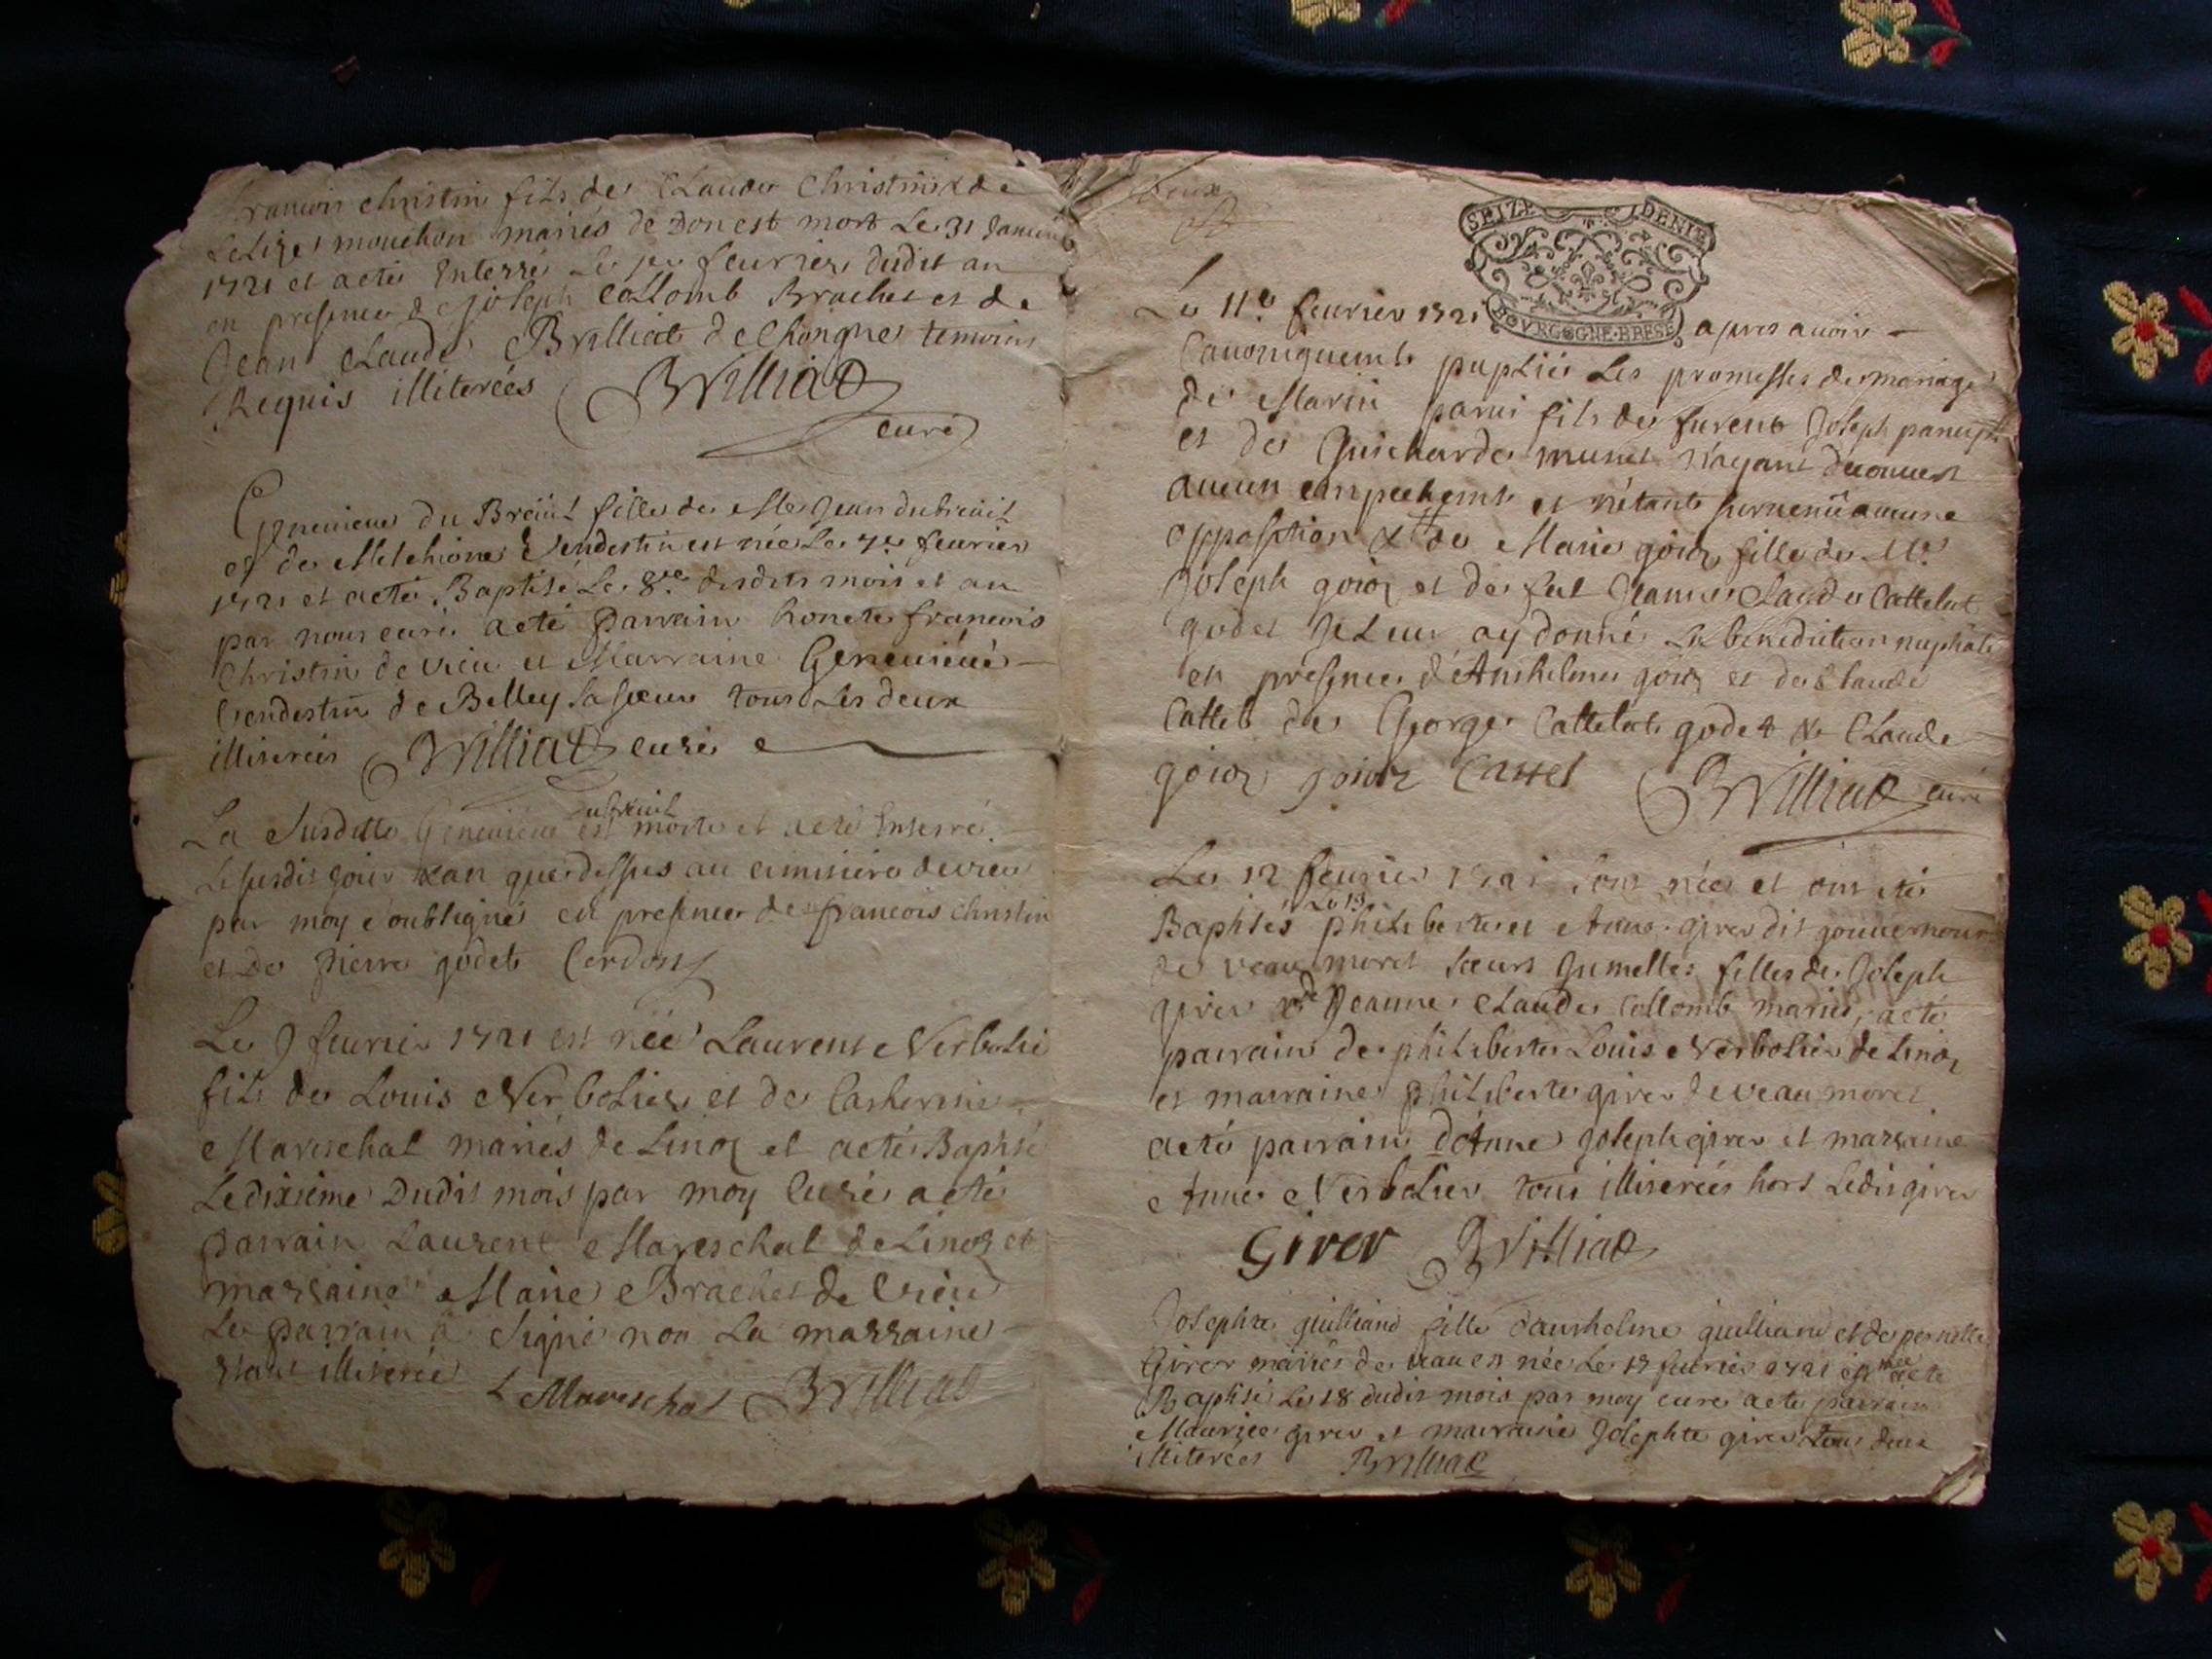 francois christin fils de Claude Christin & de
mouchon mariés de Don est mort Le 31 Janvier
1721 et a eté Enterré Le 1er feurier dudit an
en presence de joseph Collomb Brachet et de
Jean Claude Brilliat de Chongne temoins
Requis illiterées Brilliat
curé
Geneuieue du Breüil fille de Mr Jean dubreüil
et de Melchione Vendestin est née Le 7e feurier
1721 et a eté Baptisé Le 8e desdits mois et an
par nous curé a eté Parrain honete francois
Christin de vieu et Marraine Geneuieue
Vendestin de Belley sa soeur tous Les deux
illiterées Brilliat curé
dubreüil
La Susditte Geneuieue est morte et a eté Enterré
Le susdit jour & an que dessus au cimitiere de vieu
par moy soubsigné en presence de francois christin
et De pierre godet Cerdon
Le 9 feurier 1721 est née Laurent Verbolié
fils de Louis Verbolier et de Catherine
Mareschal mariés de Linod et a eté Baptisé
Le dixieme Dudit mois par moy Curé a eté
parrain Laurent Mareschal de Linod et
marraine Marie Brachet de Vieu
Le parrain a signé non La marraine
etant illiterée L Mareschal Brilliat
deux
SEIZE DENIE
BOVRGOGNE·BRESE
Le 11e feurier 1721 apres auoir
Canoniquemt puplié Les promesses de mariage
de Marin panui fils de furent Joseph panui
et de Guicharde munet N'ayant decouuert
aucun empechemt et n'étant suruenüe aucune
opposition & de Marie goid fille de Mr
Joseph goid et de fut Jeanne Claude Cattelat
godet Je Leur ay donné La benediction nuptiale
en présence d'Anthelme goid et de Claude
Cattel de George Cattelat godet & Claude
goid goid Cattel Brilliat curé
Le 12 feurier 1721 sont née et ont eté
Le 13
Baptisés philiberte et Anne girer dit gouuernour
de veau moret sœurs Jumelles filles de Joseph
girer & de Jeanne Claude Collomb mariés, a eté
parrain de philiberte Louis Verbolier de Linod
et marraine philiberte girer de veau moret
a eté parrain D'Anne Joseph girer et marraine
Anne Verbolier tous illiterées hors Ledit girer
Girer Brilliat
Josephte guilliand fille d'anthelme guilliand et de pernette
Girer mariés de veau est née Le 17 feurier 1721 et a eté
Baptisé Le 18 dudit mois par moy curé a eté parrain
Maurice girer et marraine Josephte girer tous deux
illiterées Brilliat